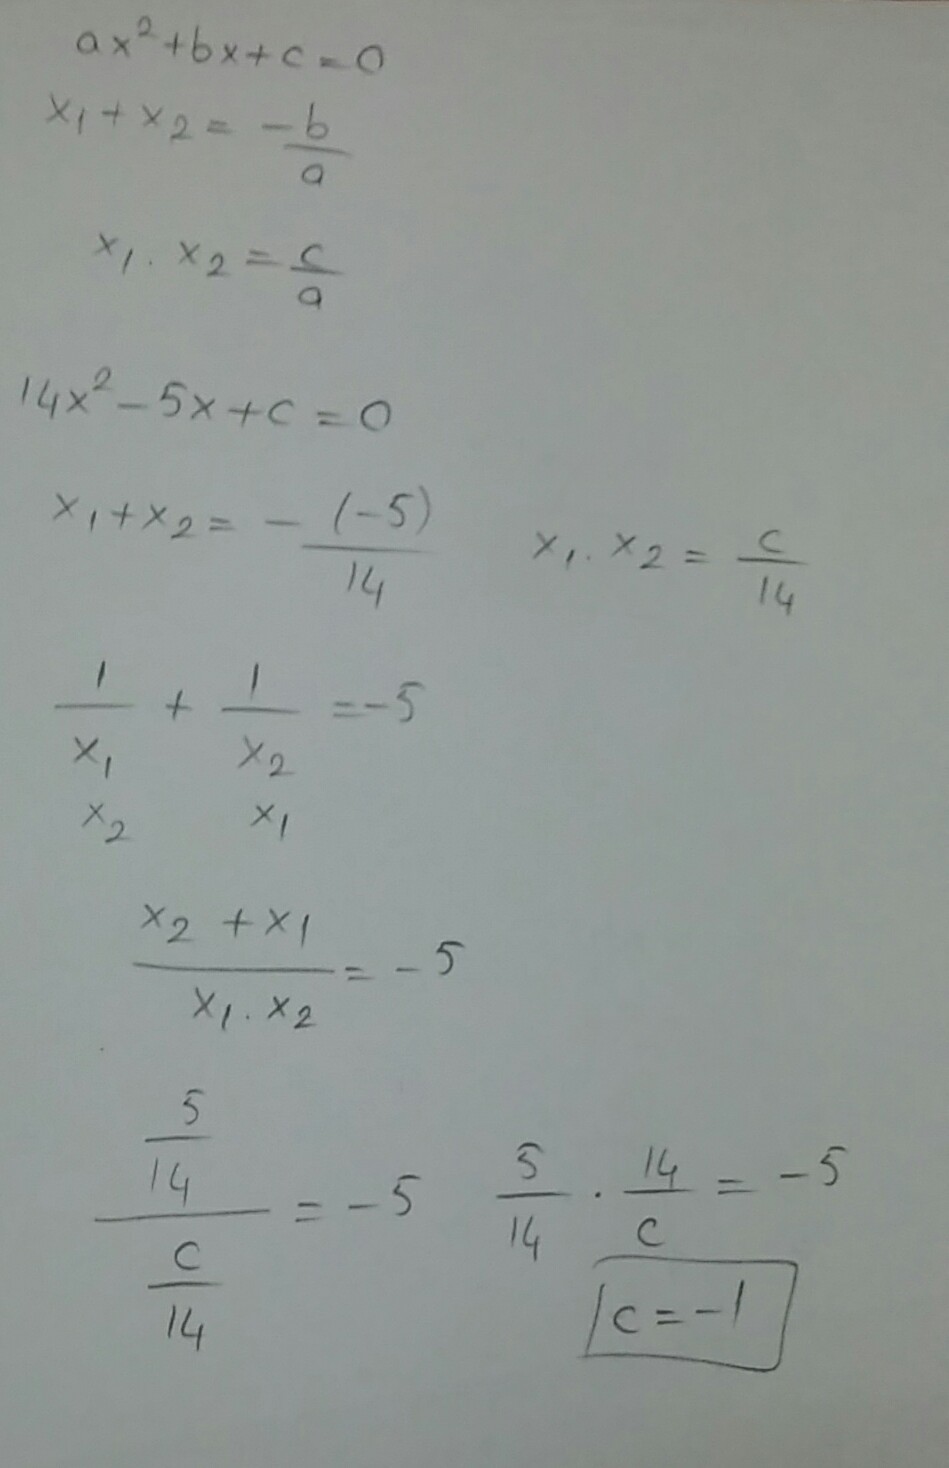 ax²+bx+c=0
x₁+x₂=-b/a
x₁.x₂=c/a
14x²-5x+c=0
x₁+x₂=-(-5)/14 x₁.x₂=c/14
1/x₁+1/x₂=-5
x₂ x₁
x₂+x₁/x₁.x₂=-5
5/14/c/14=-5 5/14.14/c=-5
c=-1